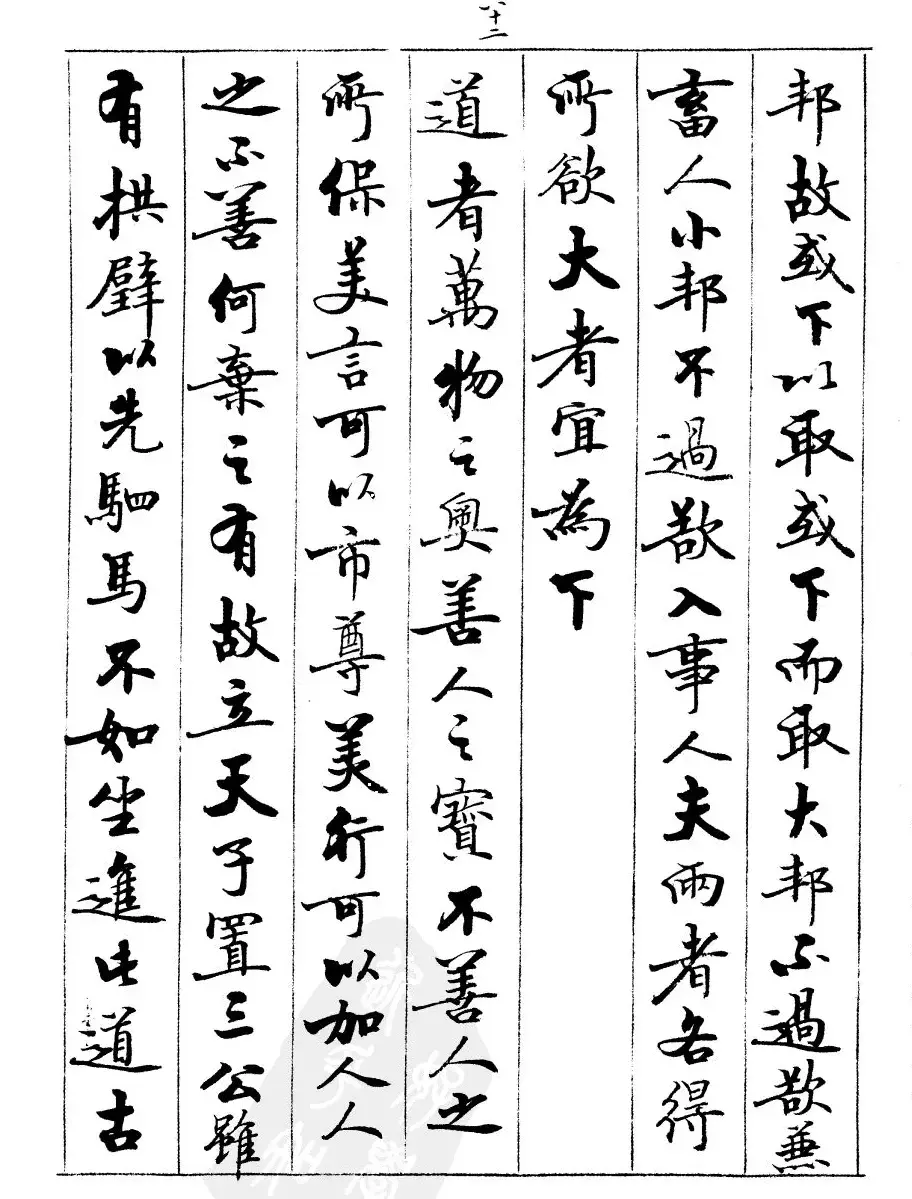 八十二
邦故或下以取或下而取大邦不過欲兼
畜人小邦不過欲入事人夫兩者各得
所欲大者宜為下
道者萬物之奧善人之寶不善人之
所保美言可以市尊美行可以加人人
之不善何棄之有故立天子置三公雖
有栱璧以先駟馬不如坐進此道古